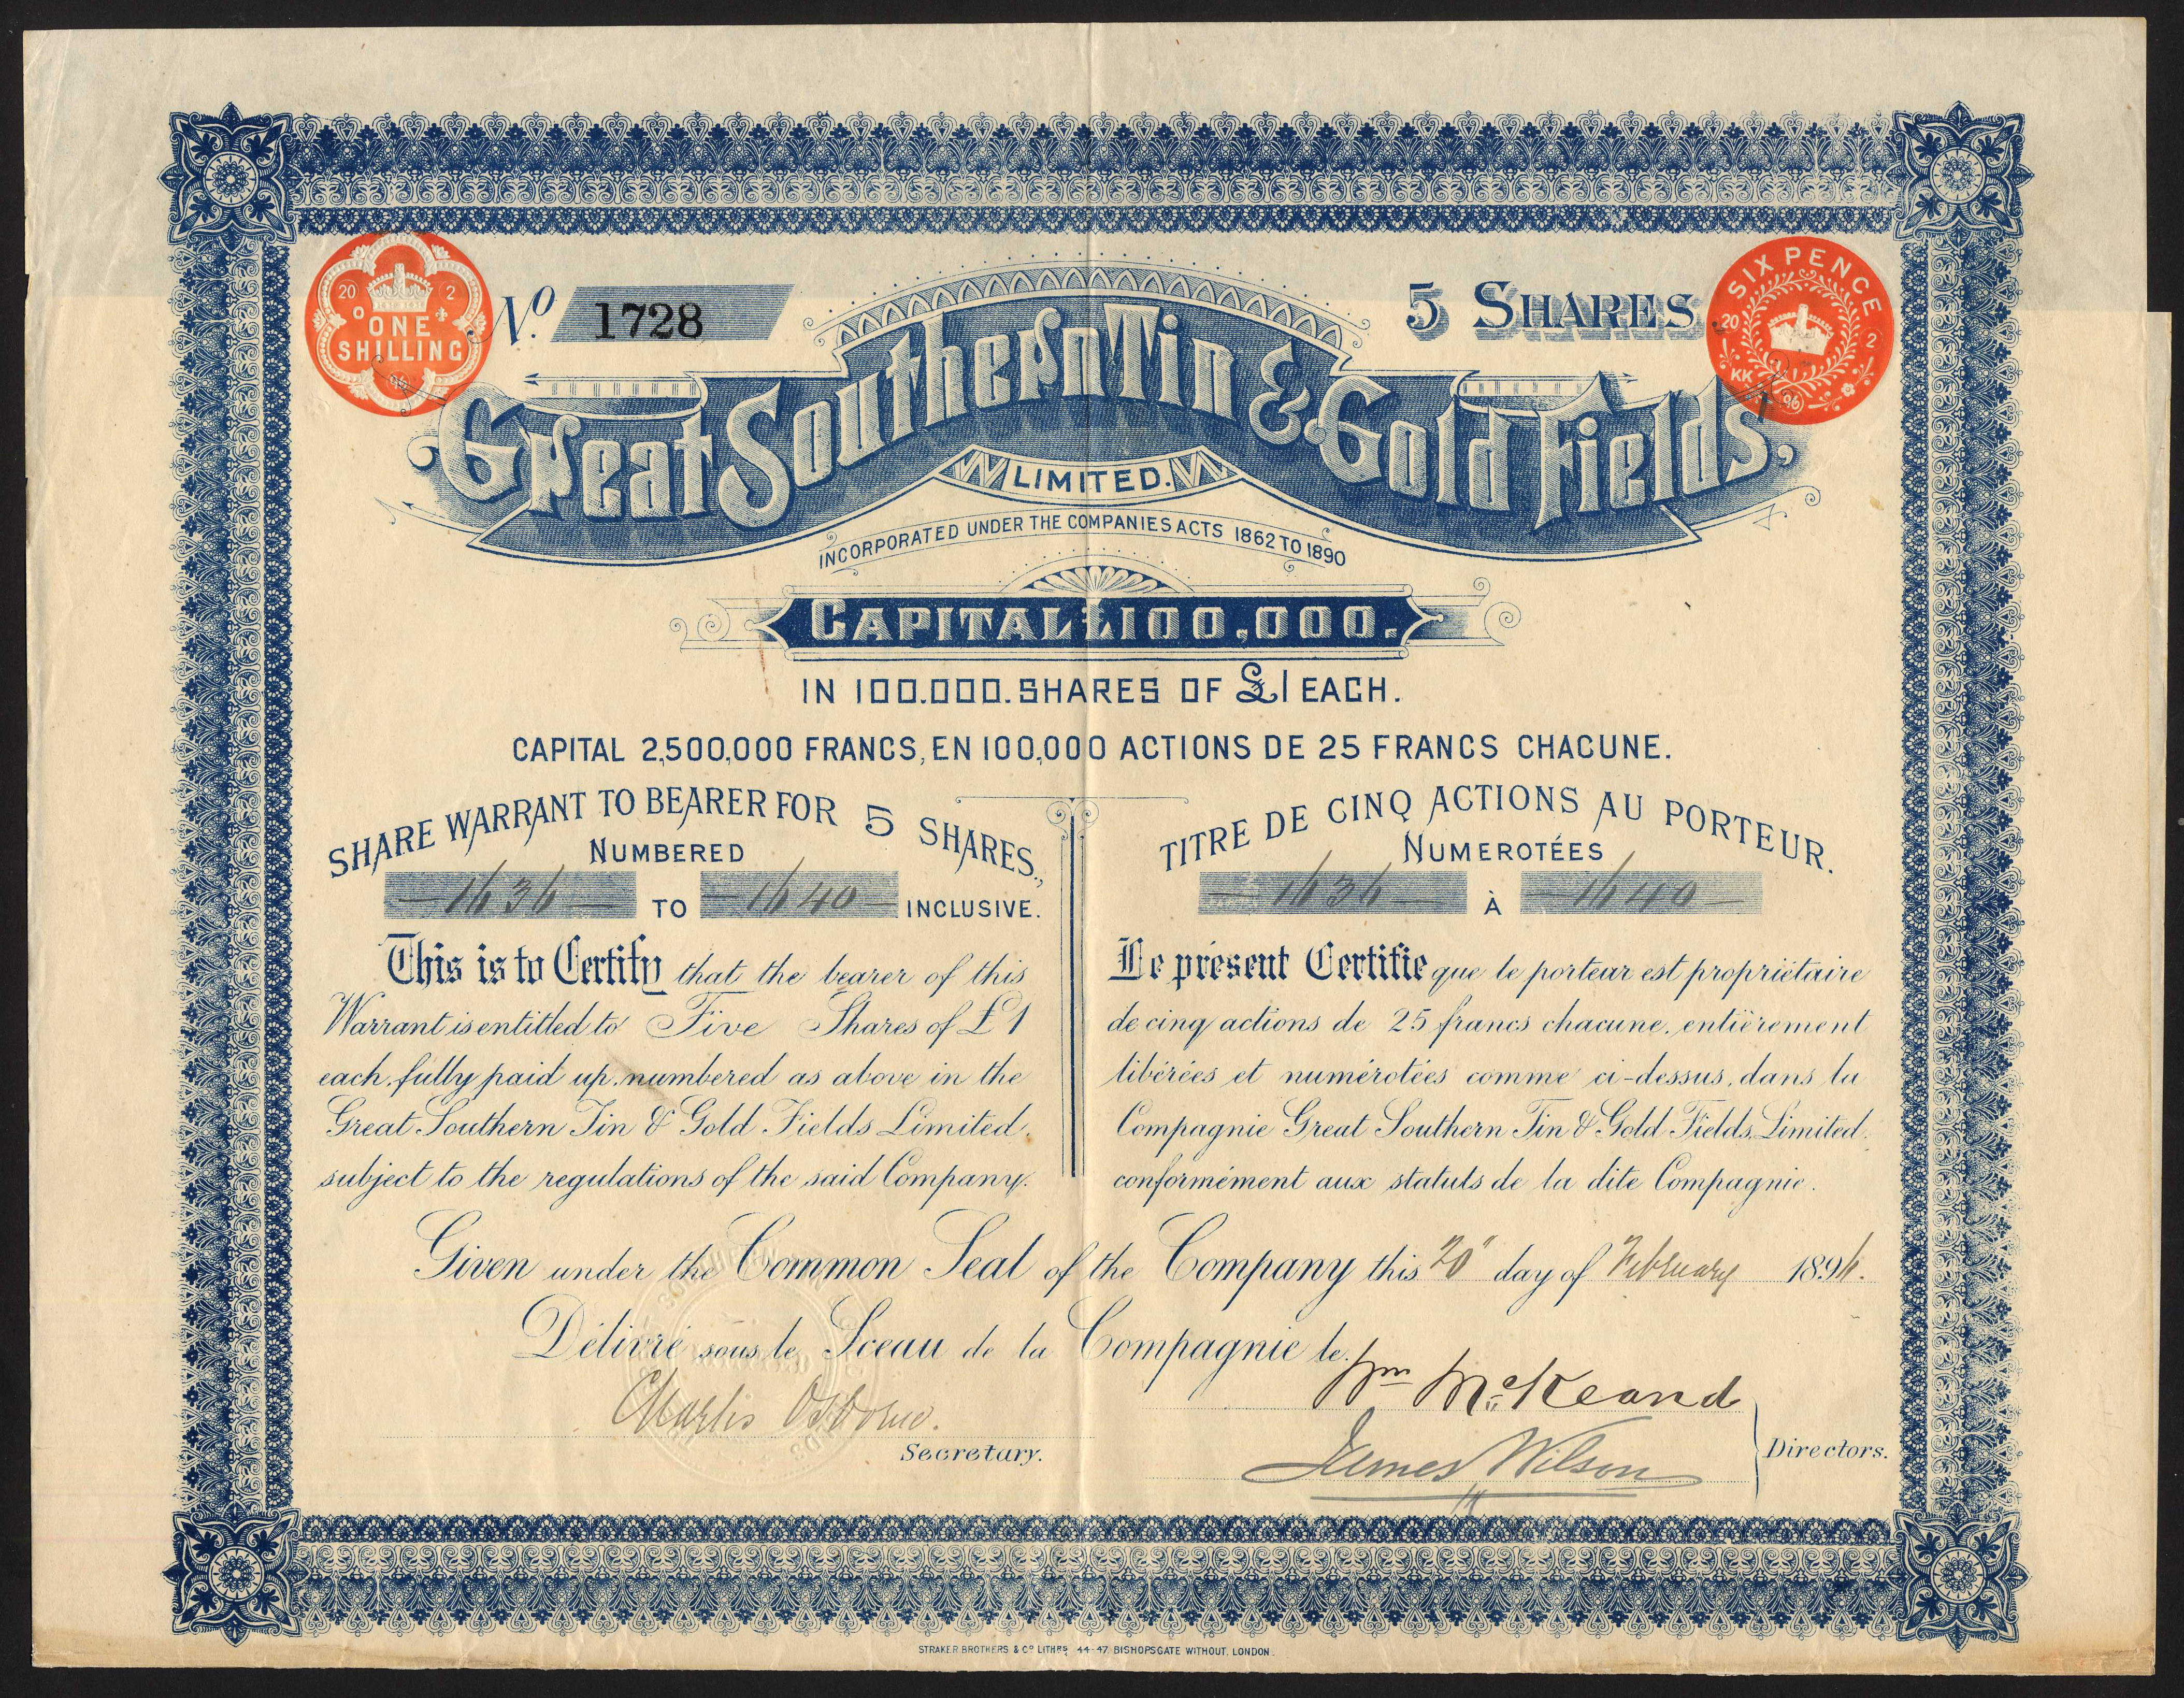 20 2
ONE
SHILLING
96
No. 1728
5 SHARES
SIX PENCE
20 2
KK
96
Great Southern Tin & Gold Fields,
LIMITED.
INCORPORATED UNDER THE COMPANIES ACTS 1862 TO 1890
CAPITAL £100,000.
IN 100.000. SHARES OF £1 EACH.
CAPITAL 2,500,000 FRANCS, EN 100,000 ACTIONS DE 25 FRANCS CHACUNE.
SHARE WARRANT TO BEARER FOR 5 SHARES.,
NUMBERED
1636 TO 1640 INCLUSIVE.
This is to Certify that the bearer of this
Warrant is entitled to Five Shares of £1
each, fully paid up, numbered as above in the
Great Southern Tin & Gold Fields Limited,
subject to the regulations of the said Company.
TITRE DE CINQ ACTIONS AU PORTEUR.
NUMEROTÉES
1636 À 1640
Le présent Certifie que le porteur est propriétaire
de cinq actions de 25 francs chacune, entièrement
libérées et numérotées comme ci-dessus, dans la
Compagnie Great Southern Tin & Gold Fields, Limited,
conformément aux statuts de la dite Compagnie.
Given under the Common Seal of the Company this 20" day of February 1896.
Délivré sous le Sceau de la Compagnie le
Wm McKeand
Charles Osborne.
Secretary.
James Wilson
Directors.
STRAKER BROTHERS & Co LITHRS, 44-47 BISHOPSGATE WITHOUT, LONDON.